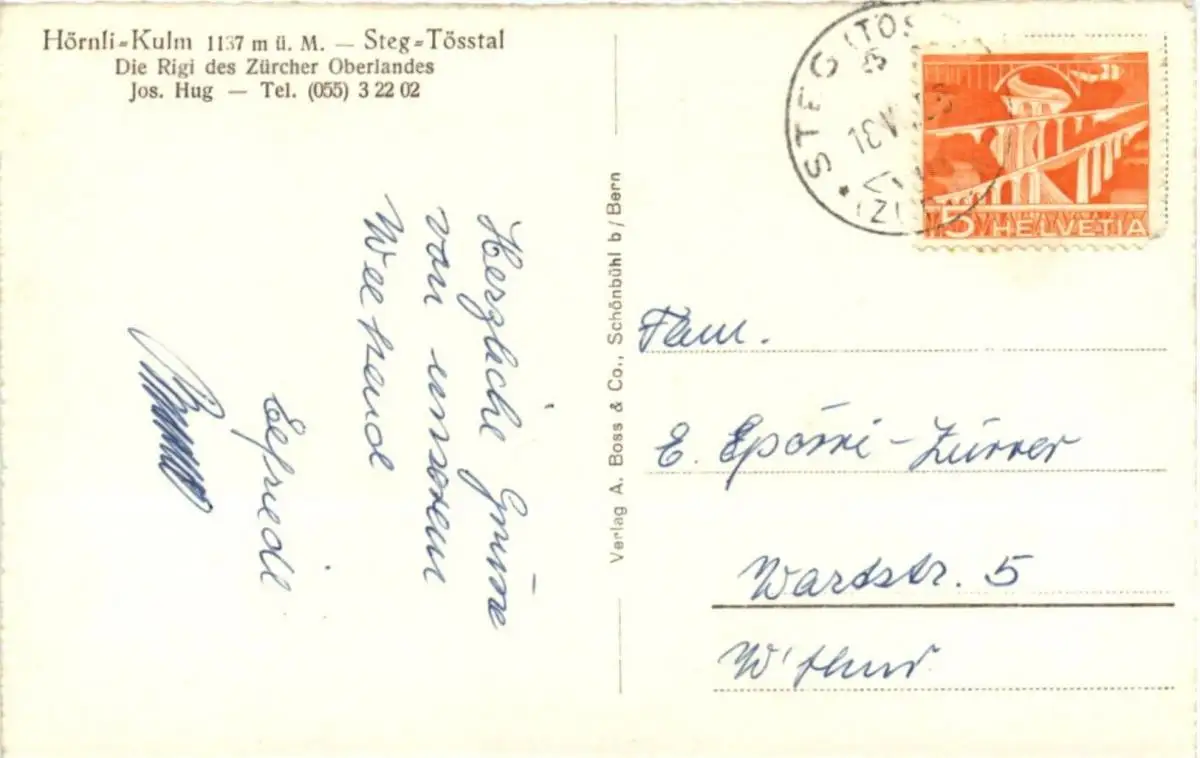 Hörnli-Kulm 1137 m ü. M. — Steg-Tösstal
Die Rigi des Zürcher Oberlandes
Jos. Hug — Tel. (055) 3 22 02
Herzliche Grüsse
von unserem
Weekend
Elfriedl
Verlag A. Boss & Co., Schönbühl b/Bern
STEG (TÖS
5 HELVETIA
Fam.
E. Zürrer
Wartstr. 5
W'thur